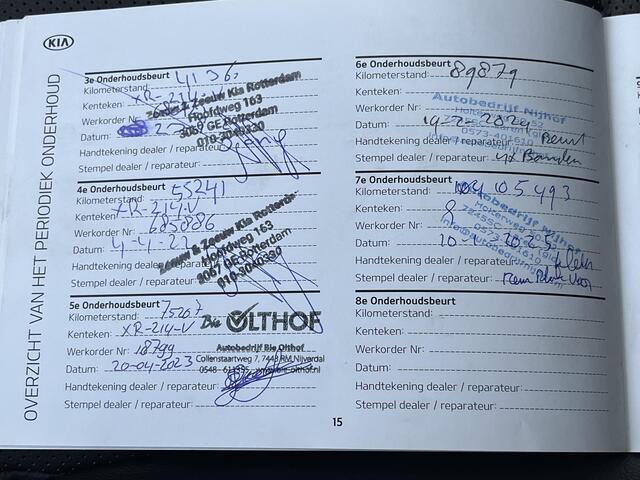 KIA
OVERZICHT VAN HET PERIODIEK ONDERHOUD
3e Onderhoudsbeurt
Kilometerstand:
Kenteken: XR-214-V
Werkorder Nr:
Datum:
Handtekening dealer / reparateur:
Stempel dealer / reparateur:
Zeeuw & Zeeuw Kia Rotterdam
Hoofdweg 163
3067 GE Rotterdam
010-3040330
4e Onderhoudsbeurt
Kilometerstand: 55241
Kenteken: XR-214-V
Werkorder Nr: 685886
Datum: 4-4-22
Handtekening dealer / reparateur:
Stempel dealer / reparateur:
Zeeuw & Zeeuw Kia Rotterdam
Hoofdweg 163
3067 GE Rotterdam
010-3040330
5e Onderhoudsbeurt
Kilometerstand: 75267
Kenteken: XR-214-V
Werkorder Nr: 18799
Datum: 20-04-2023
Handtekening dealer / reparateur:
Stempel dealer / reparateur:
Bie OLTHOF
Autobedrijf Bie Olthof
Collenstaartweg 7, 7443 RM Nijverdal
6e Onderhoudsbeurt
Kilometerstand: 89879
Kenteken:
Werkorder Nr:
Datum: 2024
Handtekening dealer / reparateur:
Stempel dealer / reparateur: 4x Banden
Autobedrijf Nijhof
7e Onderhoudsbeurt
Kilometerstand: 105493
Kenteken:
Werkorder Nr:
Datum: 2025
Handtekening dealer / reparateur:
Stempel dealer / reparateur:
Autobedrijf Nijhof
8e Onderhoudsbeurt
Kilometerstand:
Kenteken:
Werkorder Nr:
Datum:
Handtekening dealer / reparateur:
Stempel dealer / reparateur:
15